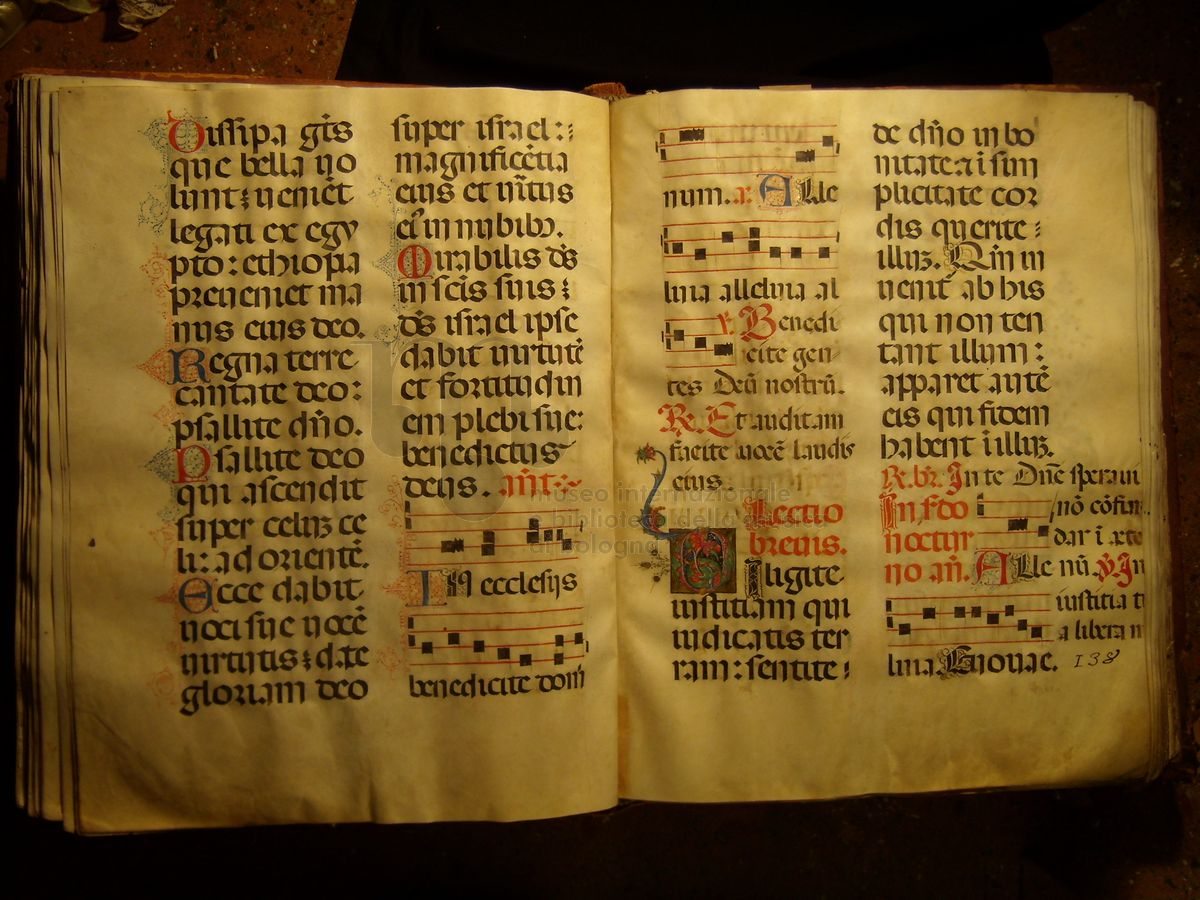 Dissipa gẽs
que bella uo
lunt: ueniẽt
legati ex egy
pto: ethiopa
preueniet ma
nus eius deo.
Regna terre
cantate deo:
psallite dño.
Psallite deo
qui ascendit
super celuz ce
li: ad orientẽ.
Ecce dabit
uoci sue uocẽ
uirtutis: date
gloriam deo
super israel:
magnificẽtia
eius et uĩtus
eĩ in nubibuz.
Mirabilis dẽs
in scis suis:
dẽs israel ipse
dabit uirtutẽ
et fortitudin
em plebi sue:
benedictus
deus. añt:
IN ecclesijs
benedicite domi
num. r. Alle
luia alleluia al
v. Benedi
cite gen
tes Deũ nostrũ.
R. Et auditam
facite uocẽ laudis
eius.
Lectio
breuis.
Diligite
iustitiam qui
iudicatis ter
ram: sentite:
de dño in bo
nitate: a ĩ sim
plicitate cor
dis querite:
illuz. Qm in
uenit ab his
qui non ten
tant illum:
apparet autẽ
eis qui fidem
habent ĩ illuz.
R. br. In te Dñe speraui
In scdo
noctur
no añ. Alle
nõ cõfun
dar ĩ ete
nũ. v. In
iustitia t
a libera m
luia. Euouae. 138
museo internazionale
biblioteca della
di bologna